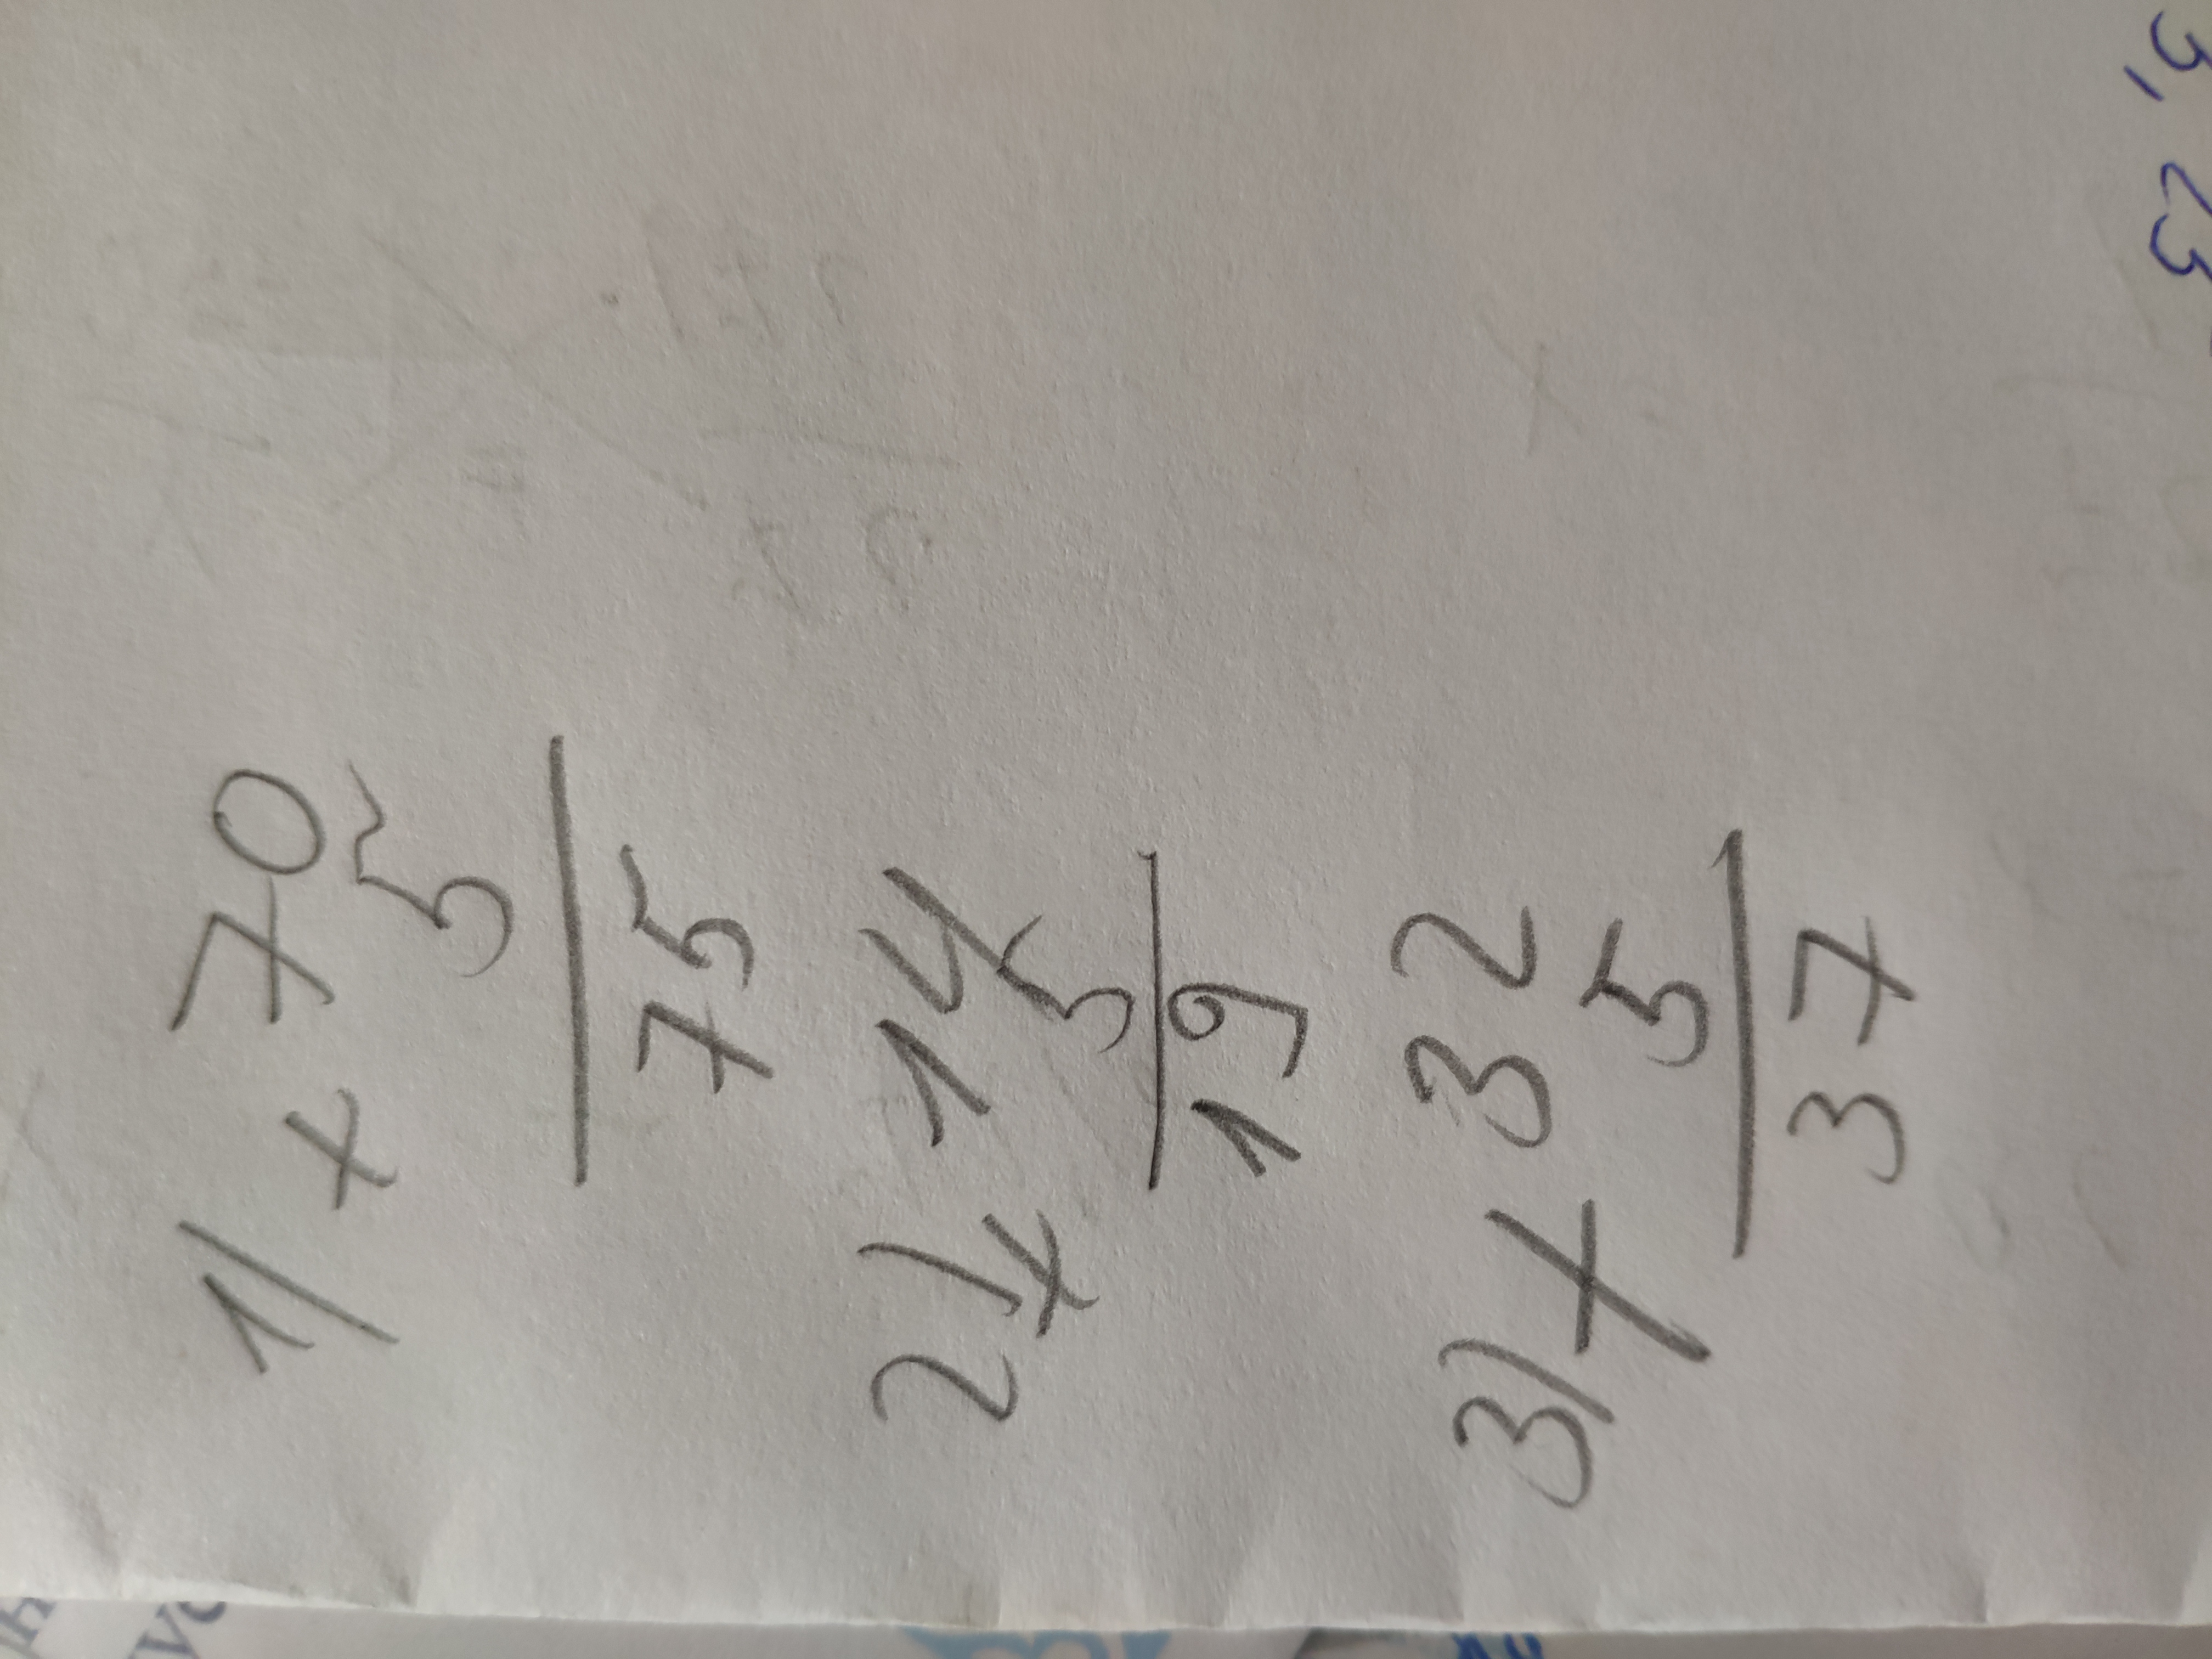 1) 70
+ 5
75
2) 14
+ 5
19
3) 32
+ 5
37